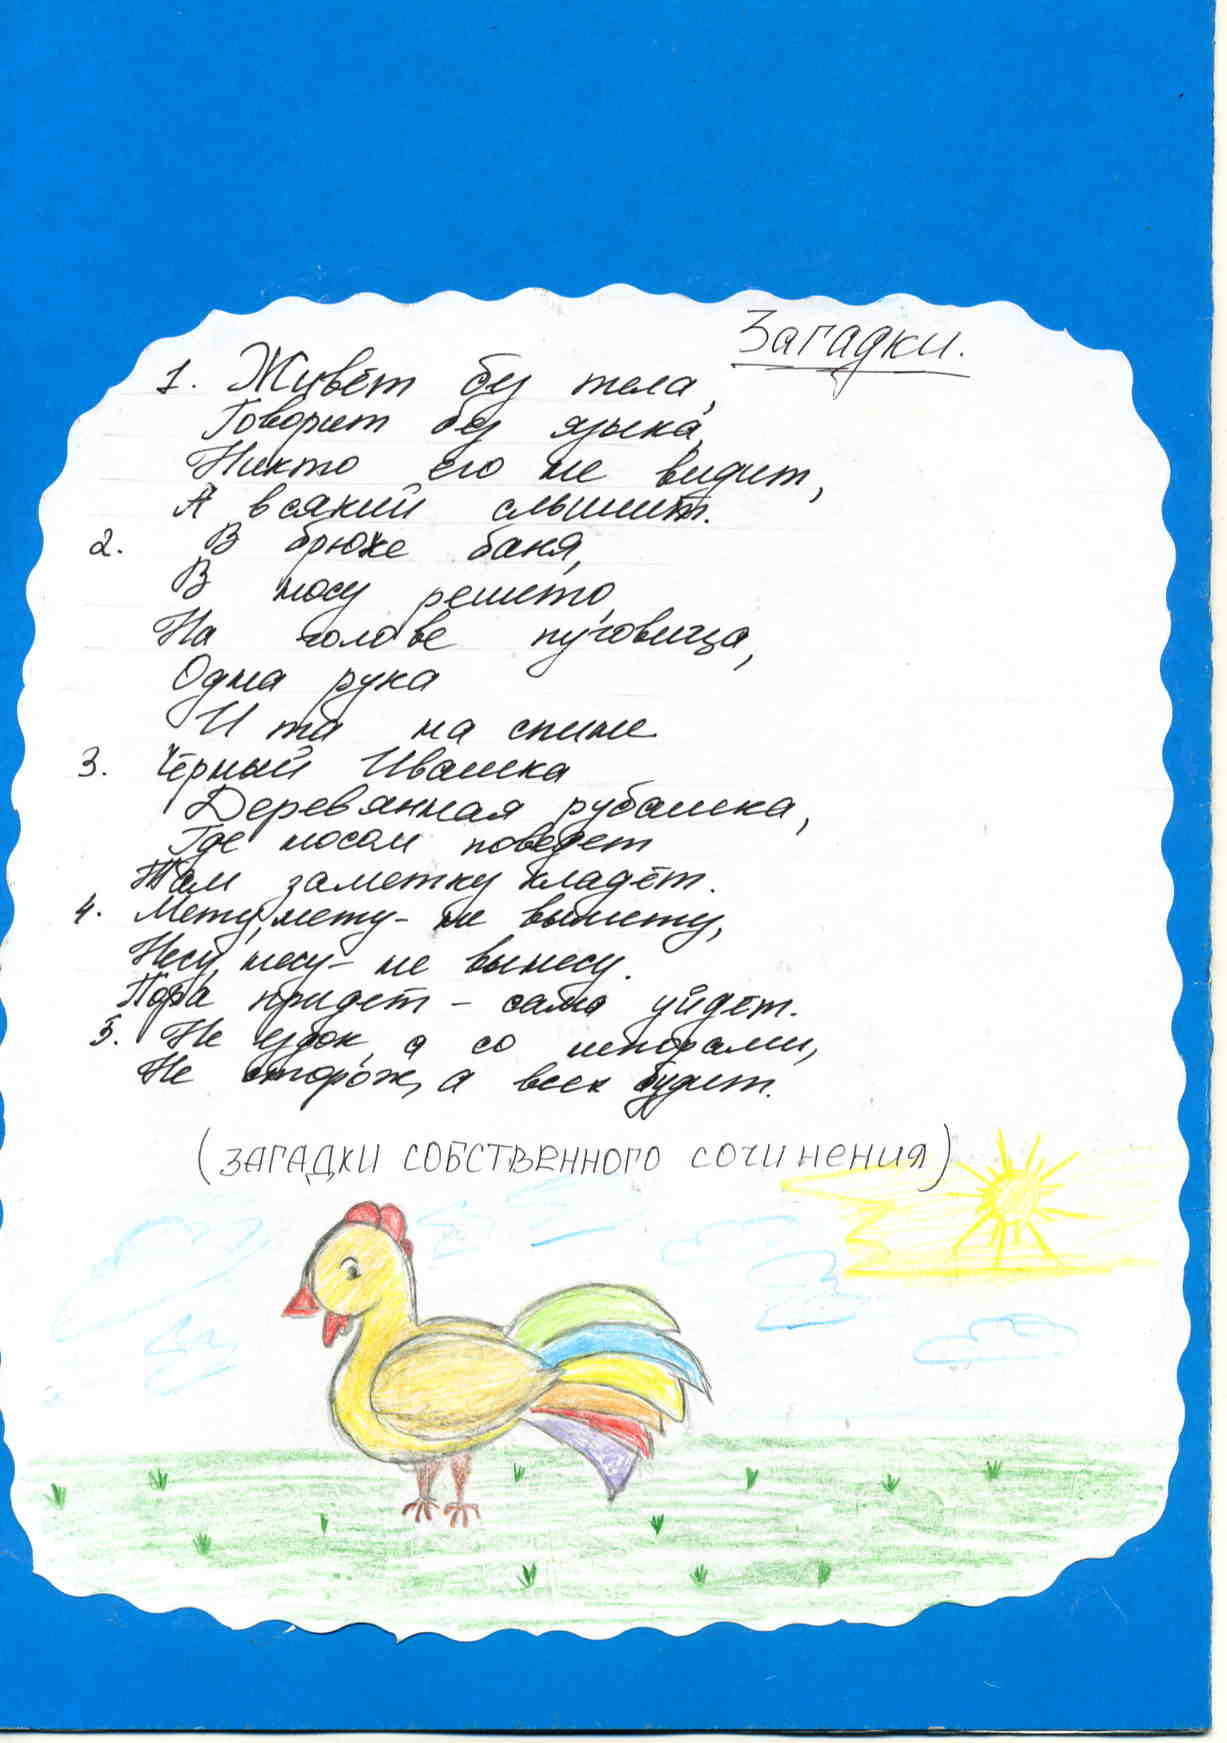 Загадки.
1. Живёт без тела,
Говорит без языка,
Никто его не видит,
А всякий слышит.
2. В брюхе баня,
В носу решето,
На голове пуговица,
Одна рука
И та на спине
3. Чёрный Ивашка
Деревянная рубашка,
Где носом поведет
Там заметку кладёт.
4. Мету, мету - не вымету,
Несу, несу - не вынесу.
Пора придет - сама уйдёт.
5. Не ездок, а со шпорами,
Не сторож, а всех будит.
(ЗАГАДКИ СОБСТВЕННОГО СОЧИНЕНИЯ)